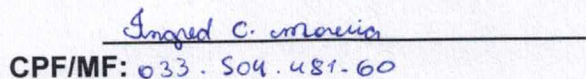 Ingred C. Moreira
CPF/MF: 033.504.481-60